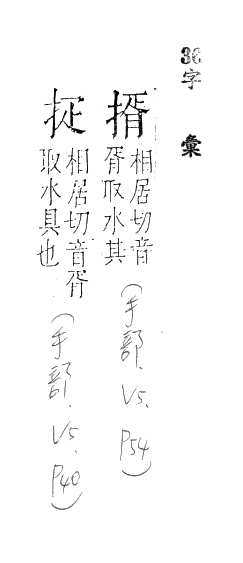 36字
彙
揟
相居切音
胥取水其
(手部.V5.
P54)
抸
相居切音胥
取水具也
(手部.V5.
P40)